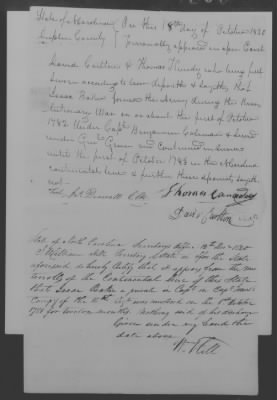 State of N Carolina } On this 18th day of October 1820
County } Personally appeared in open Court
David Carlton & Thomas Kannaday who being first
Sworn according to law deposeth & sayeth that
Isaac Baker joined the Army during the Revo
lutionary War on or about the first of October
1782 Under Capt Benjamin Coleman & served
under Genl Green and Continued in Service
until the first of October 1783 in the N Carolina
continental line & further these deponents sayeth
not
Thomas Kannaday
David Carlton
State of North Carolina Secretary's office 12th Dec 1820
I William Hill Secretary of State in & for the State
aforesaid do hereby Certify that it appears from the mus
ter rolls of the Continental line of this State
that Isaac Baker a private in Capt
Company of the 10th Regt was mustered on the 1st October
1781 for twelve months. Nothing said of his discharge
Given under my hand the
date above
W. Hill